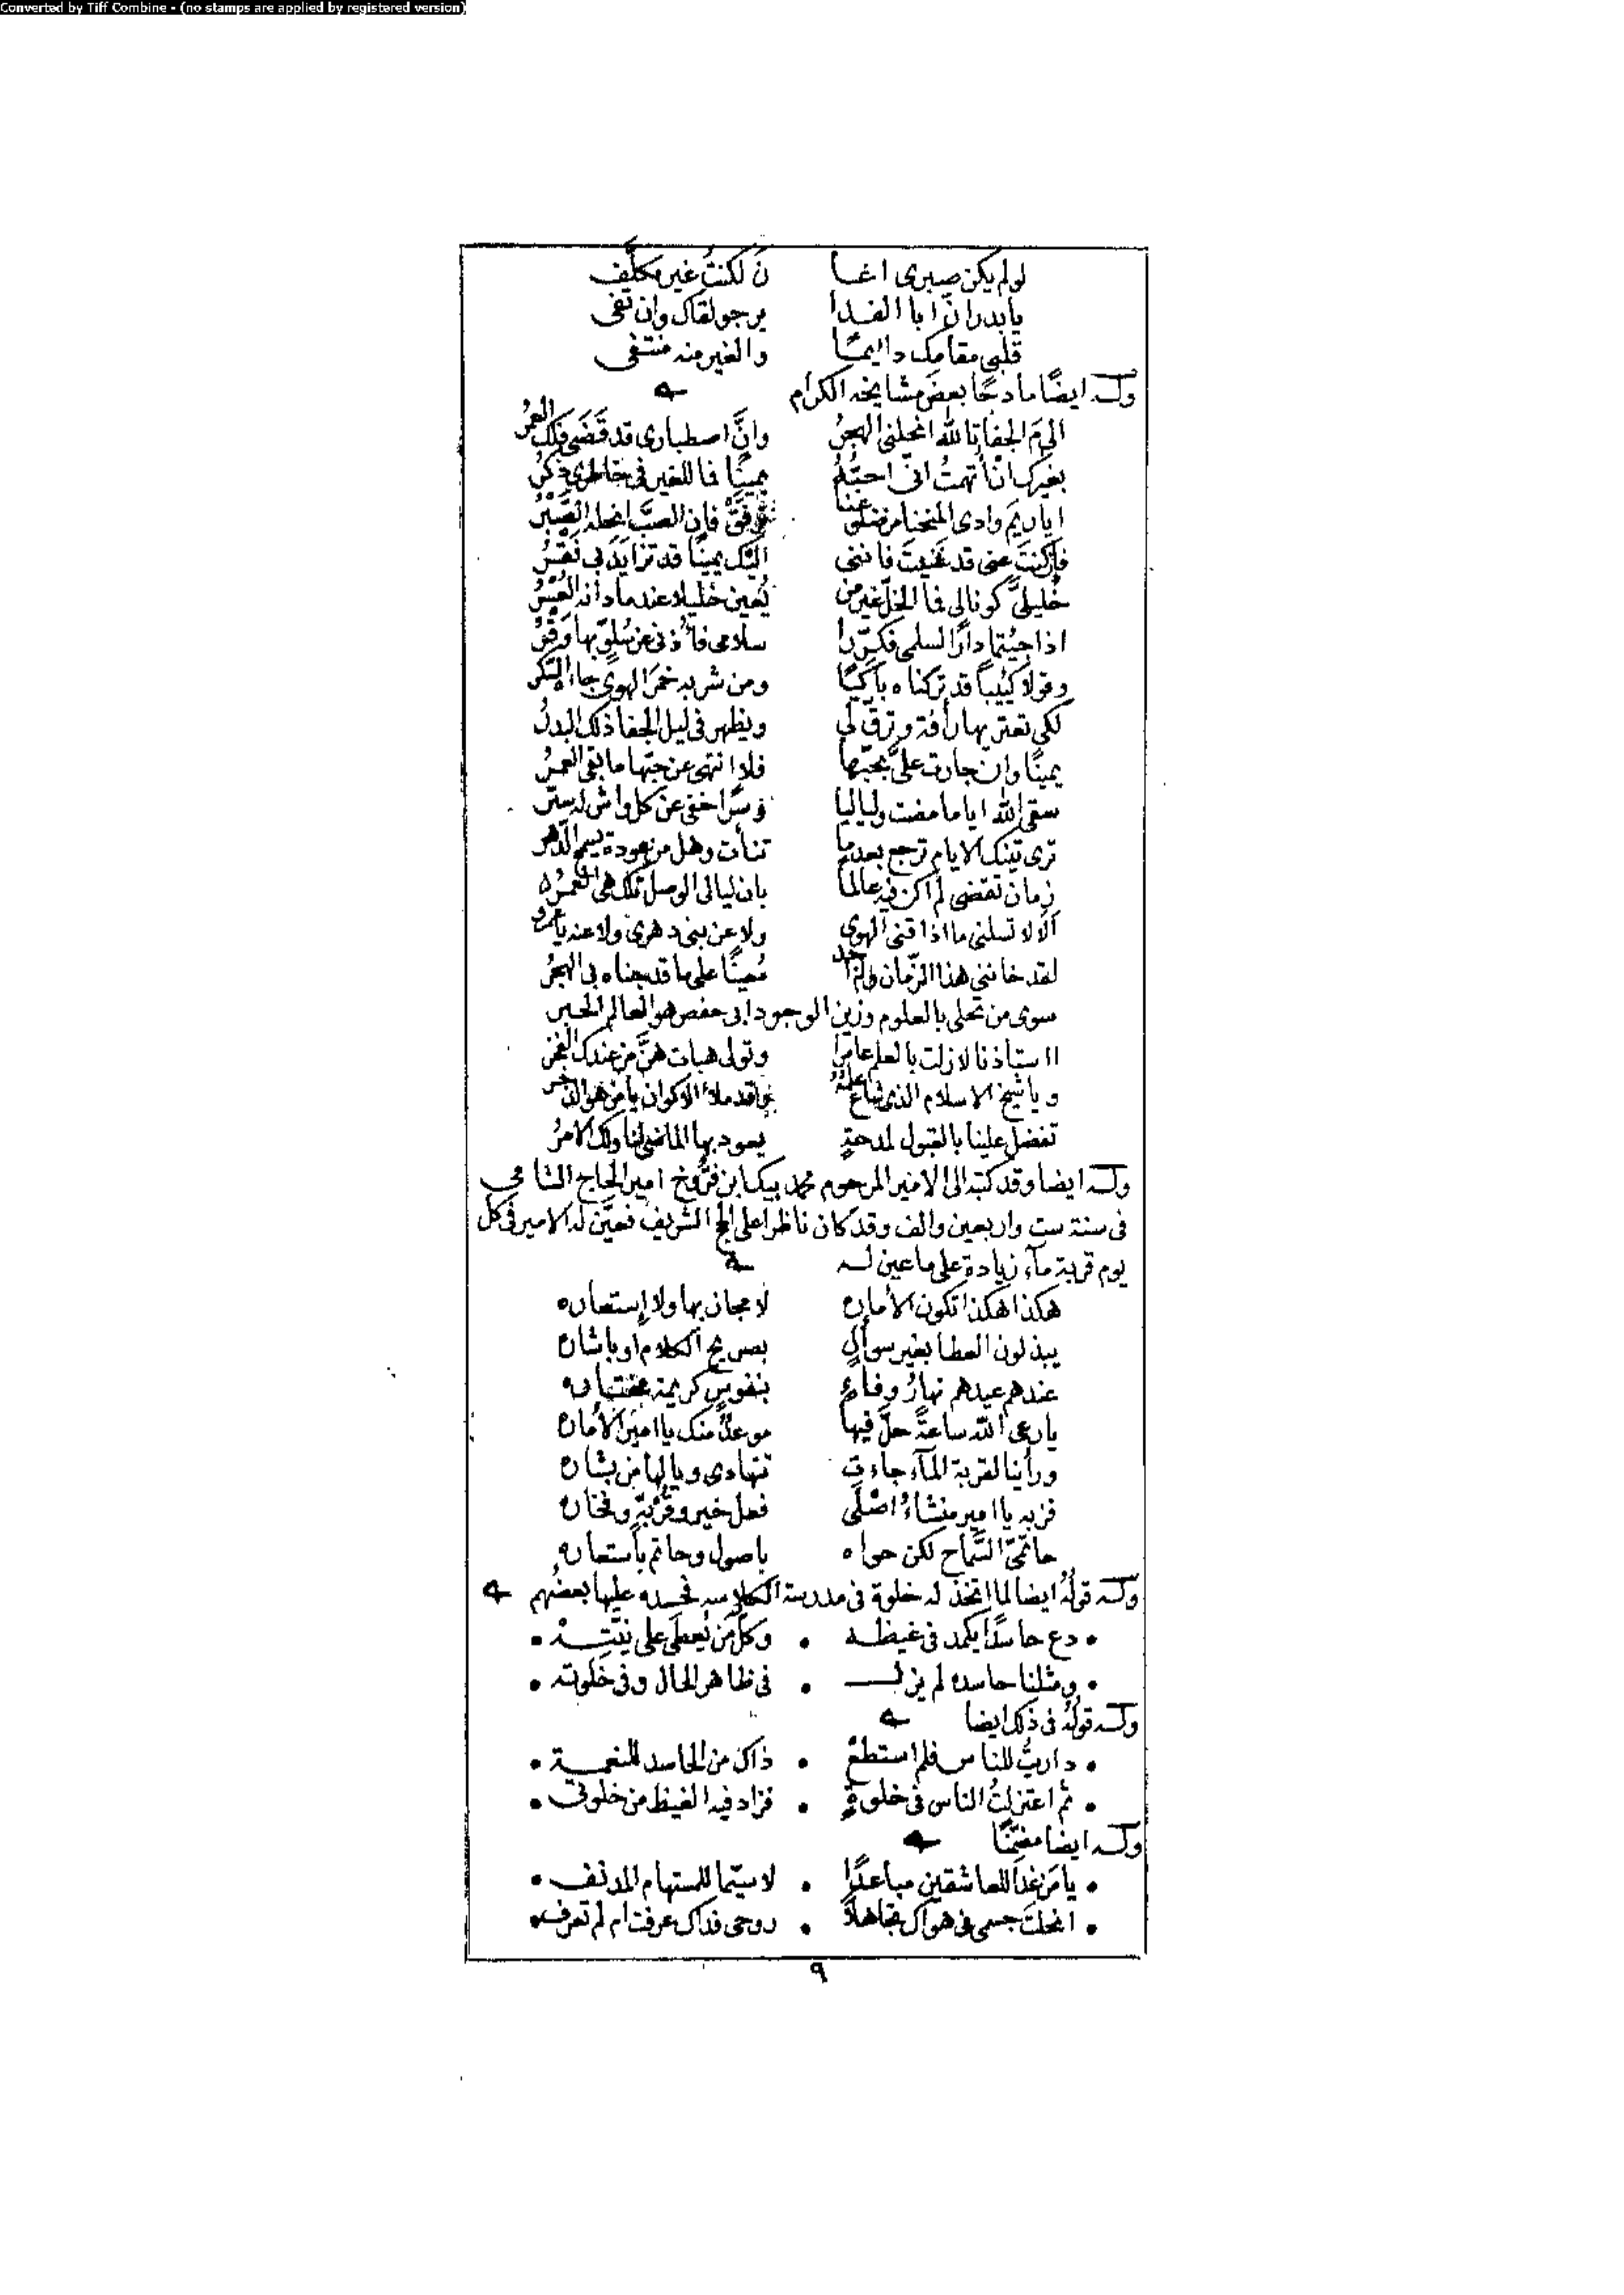 Converted by Tiff Combine - (no stamps are applied by registered version)
لو لم يكن صبرى اغا نَ لكنتُ غير مكلّف
يا بدر انّ ابا الفدا يرجو لقاك وان تفى
قلبى مقامك دايمًا والغير منه منتفى
وله ايضًا مادحًا بعض مشايخه الكرام
الىمَ الجفا تا لله انحلنى الهجرُ وانَّ اصطبارى قد قَضَى فلك العمرُ
بغيرك انْ أتهمتُ انّى احبّهُ يمينًا فما للغير فى خاطرى ذكرُ
ايا ريم وادى المنحنا من ضلوعنا ترفّقْ فان الصبَّ انحله الصَّبْرُ
فان كنتَ عنى قد غنيتَ فاننى اليْك يمينًا قد تزايد بى فقرُ
خليلىَّ كونا لى فما الخلّ غير من يُعين خليلا عندما دانه العُسْرُ
اذا جئتما دارًا لسلمى فكرّرا سلامى فاُذنى عن سُلوّ بها وَقْرُ
وقولا كئيباً قد تركناه باكيًا ومن شربه خمرَ الهوى جاءه السّكر
لكى تعتريها رأفة وترقّ لى ويظهر فى ليل الجفا ذلك البدرُ
يمينًا وان جارت علىَّ بحبّها فلا انتهى عن حبّها ما بقى العمرُ
سقى الله اياما مضت ولياليا وسرّا خفى عن كل واش له ستر
ترى تينك الايام ترجع بعدما تنأت وهل من عودة يسمح الدّهر
زمان تقضى لم اكن فيه عالما بان ليالى الوصل تلك هى العمرُ
ألا لا تسلنى ما اذاقنى الهوى ولا عن بنى دهرى ولا عنه يا عمرو
لقد خاننى هذا الزّمان ولم اجد مُعينًا على ما قد جناه بى الهجرُ
سوى من تحلى بالعلوم وزين الوجود ابى حفص هو العالم الحبر
ااستاذنا لازلت بالعلم عامرا وتولى هبات هنَّ من عندك الفخر
ويا شيخ الاسلام الذى شاع علمه وقد ملأ الاكوان يا من هو
تفضل علينا بالقبول لمدحةٍ يعود بها الماضى لنا ولك الامرُ
وله ايضا وقد كتبه الى الامير المرحوم محمد بيك ابن فرّوخ امير الحاج الشامى
فى سنة ست واربعين والف وقد كان ناظرا على الحج الشريف فعيّن له الامير فى كل
يوم قربة مآء زيادة على ما عين له
هكذا هكذا تكون الأماره لا مجاز بها ولا إستعاره
يبذلون العطا بغير سوألٍ بصريح الكلام او باشاره
عندهم عيدهم نهارُ وفاءٍ بنفوسٍ كريمة مختاره
يا رعى الله ساعةً حلّ فيها موعدٌ منك يا امير الأماره
ورأينا لقربة المآء جاءت تتهادى ويا لها من بشاره
فزبه يا امير منشاءُ اصْلى فعل خير وقُرْبةٍ وفخاره
حاتمىّ السَّماح لكن حواه باصول وحاتم بأستعاره
وله قولُهُ ايضا لما اتخذ له خلوة فى مدرسة الكلاسه فحسده عليها بعضُهم
• دع حاسدًا يكمد فى غيظه • وكلّ من يُعطى على نيّته •
• ومثلنا حاسده لم يزل • فى ظاهر الحال وفى خلوته •
وله قولُهُ فى ذلك ايضا
• داريتُ للناس فلم استطعْ • ذاك من الحاسد للنعمة •
• ثم اعتزلتُ الناس فى خلوةٍ • فزاد فيه الغيظ من خلوتى •
وله ايضا مضمّنًا
• يا من غدا للعاشقين مباعدًا • لا سيّما للمستهام المدنف •
• انحلت جسمى فى هواك تجاهلاً • روحى فداك عرفت ام لم تعرف •
٩